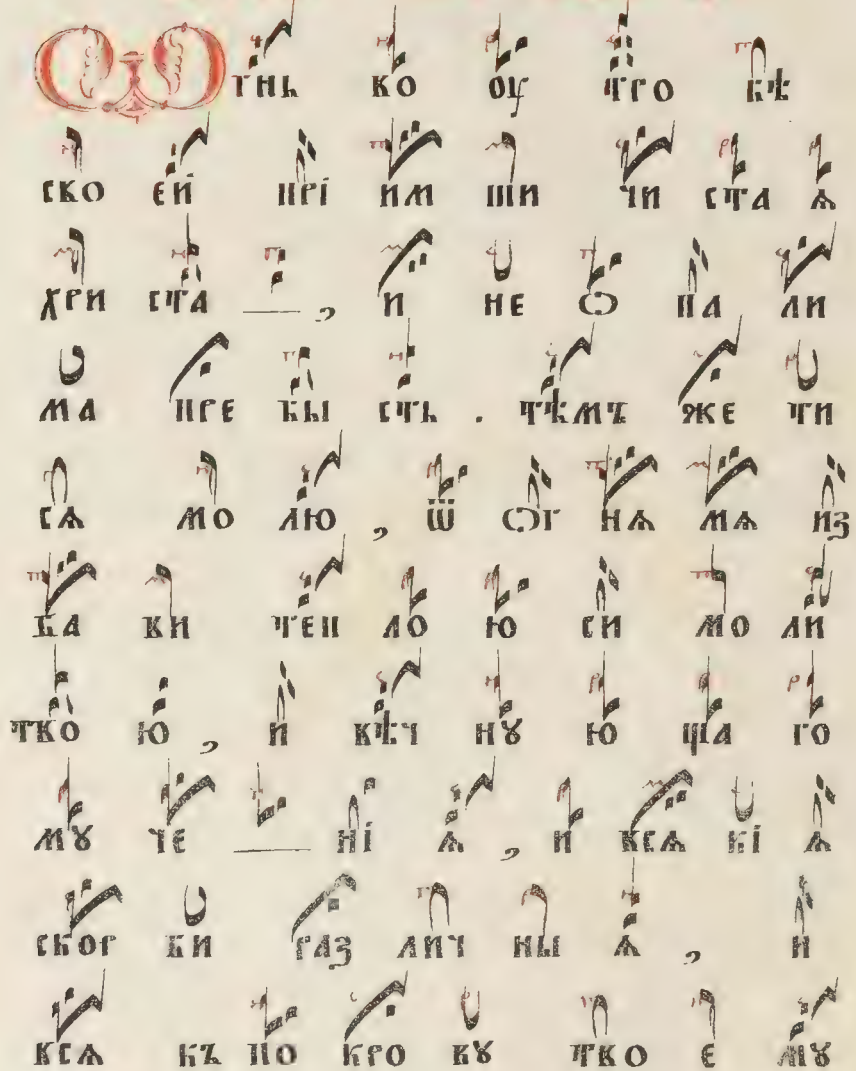 Ѡ гнь во оу тро бѣ
сво ей прі им ши чи ста ѧ
хри ста — , и не ѡ па ли
ма пре бы сть . тѣмъ же ти
сѧ мо лю , ѿ ѡг нѧ мѧ из
ба ви теп ло ю си мо ли
тво ю , и вѣч нꙋ ю ща го
мꙋ че — ні ѧ , и всѧ кі ѧ
скор би раз лич ны ѧ , и
всѧ къ по кро вꙋ тво е мꙋ